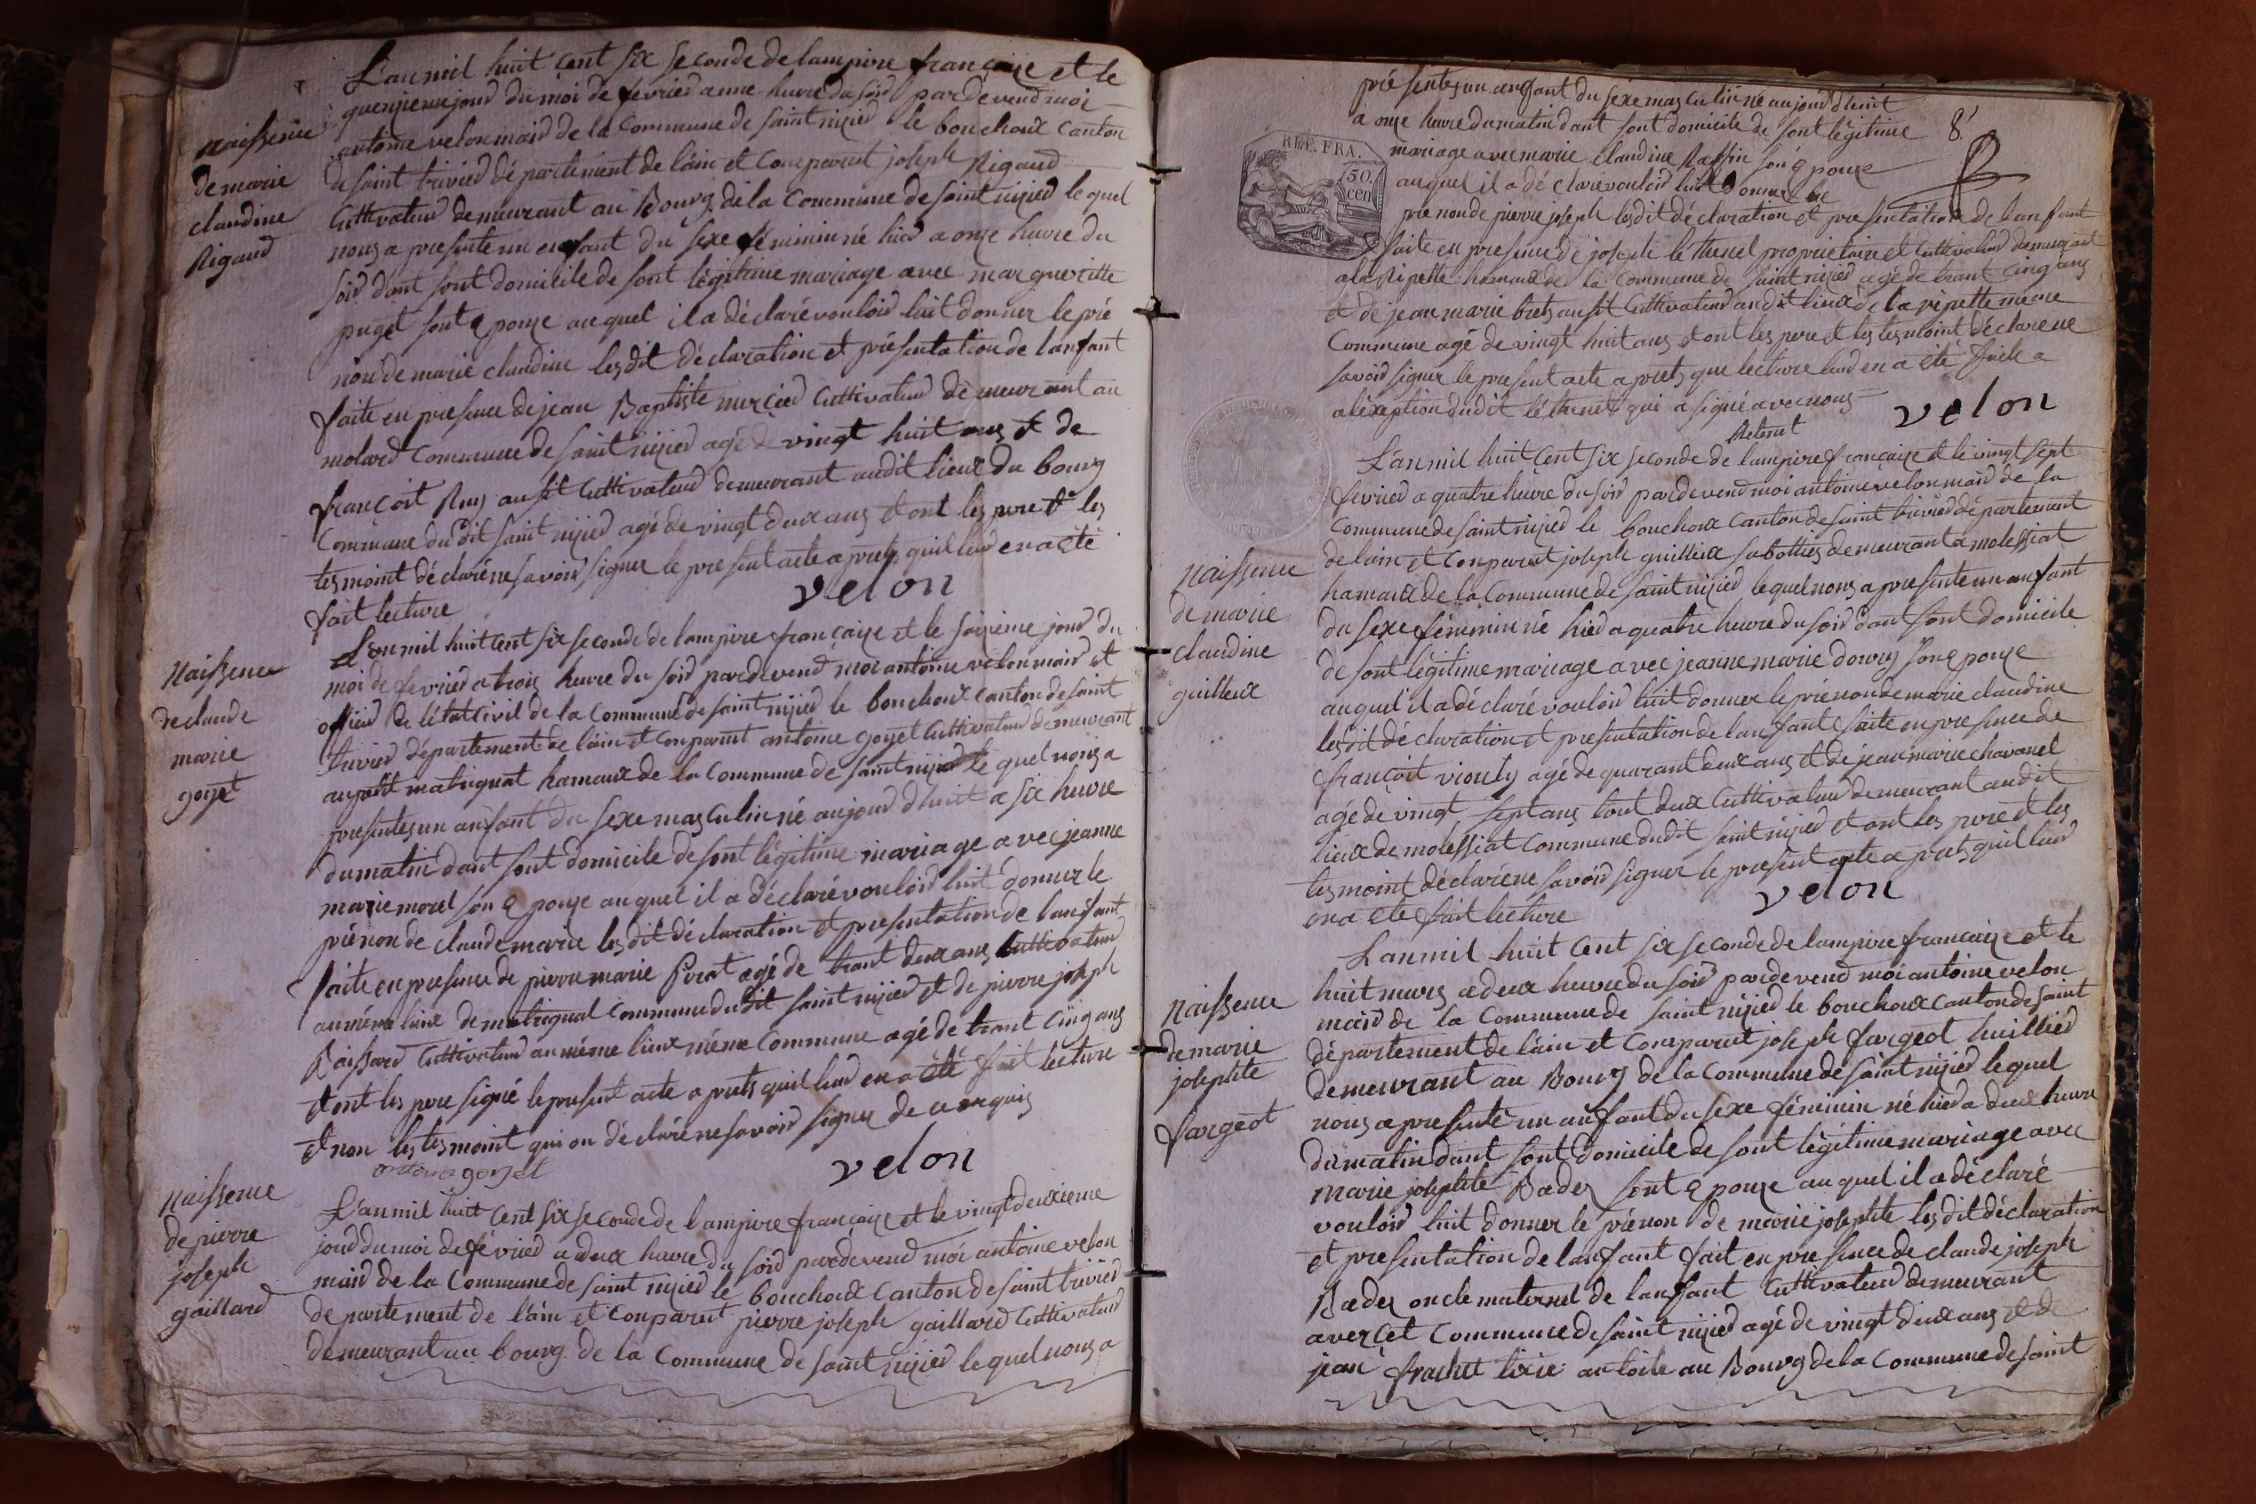 L'an mil huit cent six seconde de lampire française et le
quenzieme jour du moi de fevried a une heure du soid pardevend moi
antoine velon maid de la Commune de saint nizied le bouchoux Canton
de saint trivied département de l'ain et Comparut joseph Rigaud
Cultivateud demeurant au Bourg de la Commune de saint nizied le quel
nous a presente un enfant du sexe féminin né hied a onze heure du
soid dant sont domicile de sont légitime mariage avec margueritte
puget sont epouze auquel il a déclaré vouloid luit donner le pré
non de marie claudine lesdit déclaration et présentation de lanfant
faite en presence de jean Baptiste mercied Cultivateud demeurant au
molard Commune de saint nizied agé de vingt huit ans et de
françoit Ruy ausit Cultivateud demeurant audit lieux du bourg
Commune du dit saint nizied agé de vingt deux ans et ont les pere et les
tesmoint déclaré ne savoid signer le present acte a prets quil leud en a été
fait lecture
velon
naissence
de marie
claudine
Rigaud
L'an mil huit cent six seconde de lampire française et le saizieme jour du
moi de fevried a trois heure du soid pardevend moi antoine velon maid et
officied de l'état Civil de la Commune de saint nizied le bouchoux canton de saint
trivied département de l'ain et Comparut antoine goyet Cultivateud demeurant
au petit matrignat hamaux de la Commune de saint nizied le quel nous a
presentes un anfant du sexe masculin né aujourd'huit a six heure
du matin dant sont domicile de sont légitime mariage avec jeanne
marie morel son epouze auquel il a déclaré vouloid luit donner le
prénon de claude marie lesdit déclaration et presentation de lanfant
faite en presence de pierre marie Pirat agé de trant deux ans Cultivateud
au même lieux de matrignat Commune du dit saint nizied et de pierre joseph
Raissard Cultivateud au même lieux même Commune agé de trant cinq ans
et ont les pere signé le present acte a prets quil leud en a été fait lecture
et non les tesmoint qui on déclaré ne savoid signer de ce requis
antoine goyet
velon
naissence
de claude
marie
goyet
L'an mil huit cent six seconde de lampire française et le vingt deuxieme
jour du moi de févried a deux heure du soid pardevend moi antoine velon
maid de la Commune de saint nizied le bouchoux Canton de saint trivied
departement de l'ain et Comparut pierre joseph gaillard Cultivateud
demeurant au bourg de la Commune de saint nizied le quel nous a
naissence
de pierre
joseph
gaillard
8
présentes un anfant du sexe masculin né aujourd'huit
a onze heure du matin dant sont domicile de sont légitime
mariage avec marie claudine Raffin son epouze
auquel il a déclaré vouloid luit donner le
prenon de pierre joseph lesdit déclaration et presentation de lanfant
faite en presence de joseph léthenet proprietaire et Cultivateud demeurant
a la ripette hamaux de la Commune de saint nizied agé de trant cinq ans
et de jean marie brets ausit Cultivateud audit lieux de la ripette meme
Commune agé de vingt huit ans et ont les pere et les tesmoint déclare ne
savoid signer le present acte a prets que lecture leud en a été faite a
a léxeption dudit léthenet qui a signé avec nous
velon
letenet
REP. FRA.
50.
cen
L'an mil huit cent six seconde de lampire française et le vingt sept
fevried a quatre heure du soid pardevend moi antoine velon maid de la
Commune de saint nizied le bouchoux Canton de saint trivied département
de lain et Comparut joseph guilleux sabottied demeurant a molessiat
hamaux de la Commune de saint nizied le quel nous a presente un anfant
du sexe féminin né hied a quatre heure du soid dant sont domicile
de sont légitime mariage avec jeanne marie dourry son epouze
auquel il a déclaré vouloid luit donner le prénon de marie claudine
lesdit déclaration et presentation de lanfant faite en presence de
françoit viouly agé de quarant deux ans et de jean marie chavanel
agé de vingt sept ans tout deux Cultivateud demeurant audit
lieux de molessiat Commune dudit saint nizied et ont les pere et les
tesmoint déclaré ne savoid signer le present acte a prets quil leud
en a été fait lecture
velon
naissence
de marie
claudine
guilleux
L'an mil huit cent six seconde de lampire française et le
huit mars a deux heure du soid pardevend moi antoine velon
maid de la Commune de saint nizied le bouchoux canton de saint
département de l'ain et Comparut joseph fargeot huillied
demeurant au Bourg de la Commune de saint nizied le quel
nous a presente un anfant du sexe féminin né hied a deux heure
du matin dant sont domicile de sont légitime mariage avec
marie josephte Badez sont epouze auquel il a déclaré
vouloid luit donner le prénon de marie josephte lesdit déclaration
et presentation de lanfant fait en presence de claude joseph
Badez oncle maternel de lanfant Cultivateud demeurant
avercet Commune de saint nizied agé de vingt deux ans et de
jean frachet tixie antoile au Bourg de la Commune de saint
naissence
de marie
josephte
fargeot